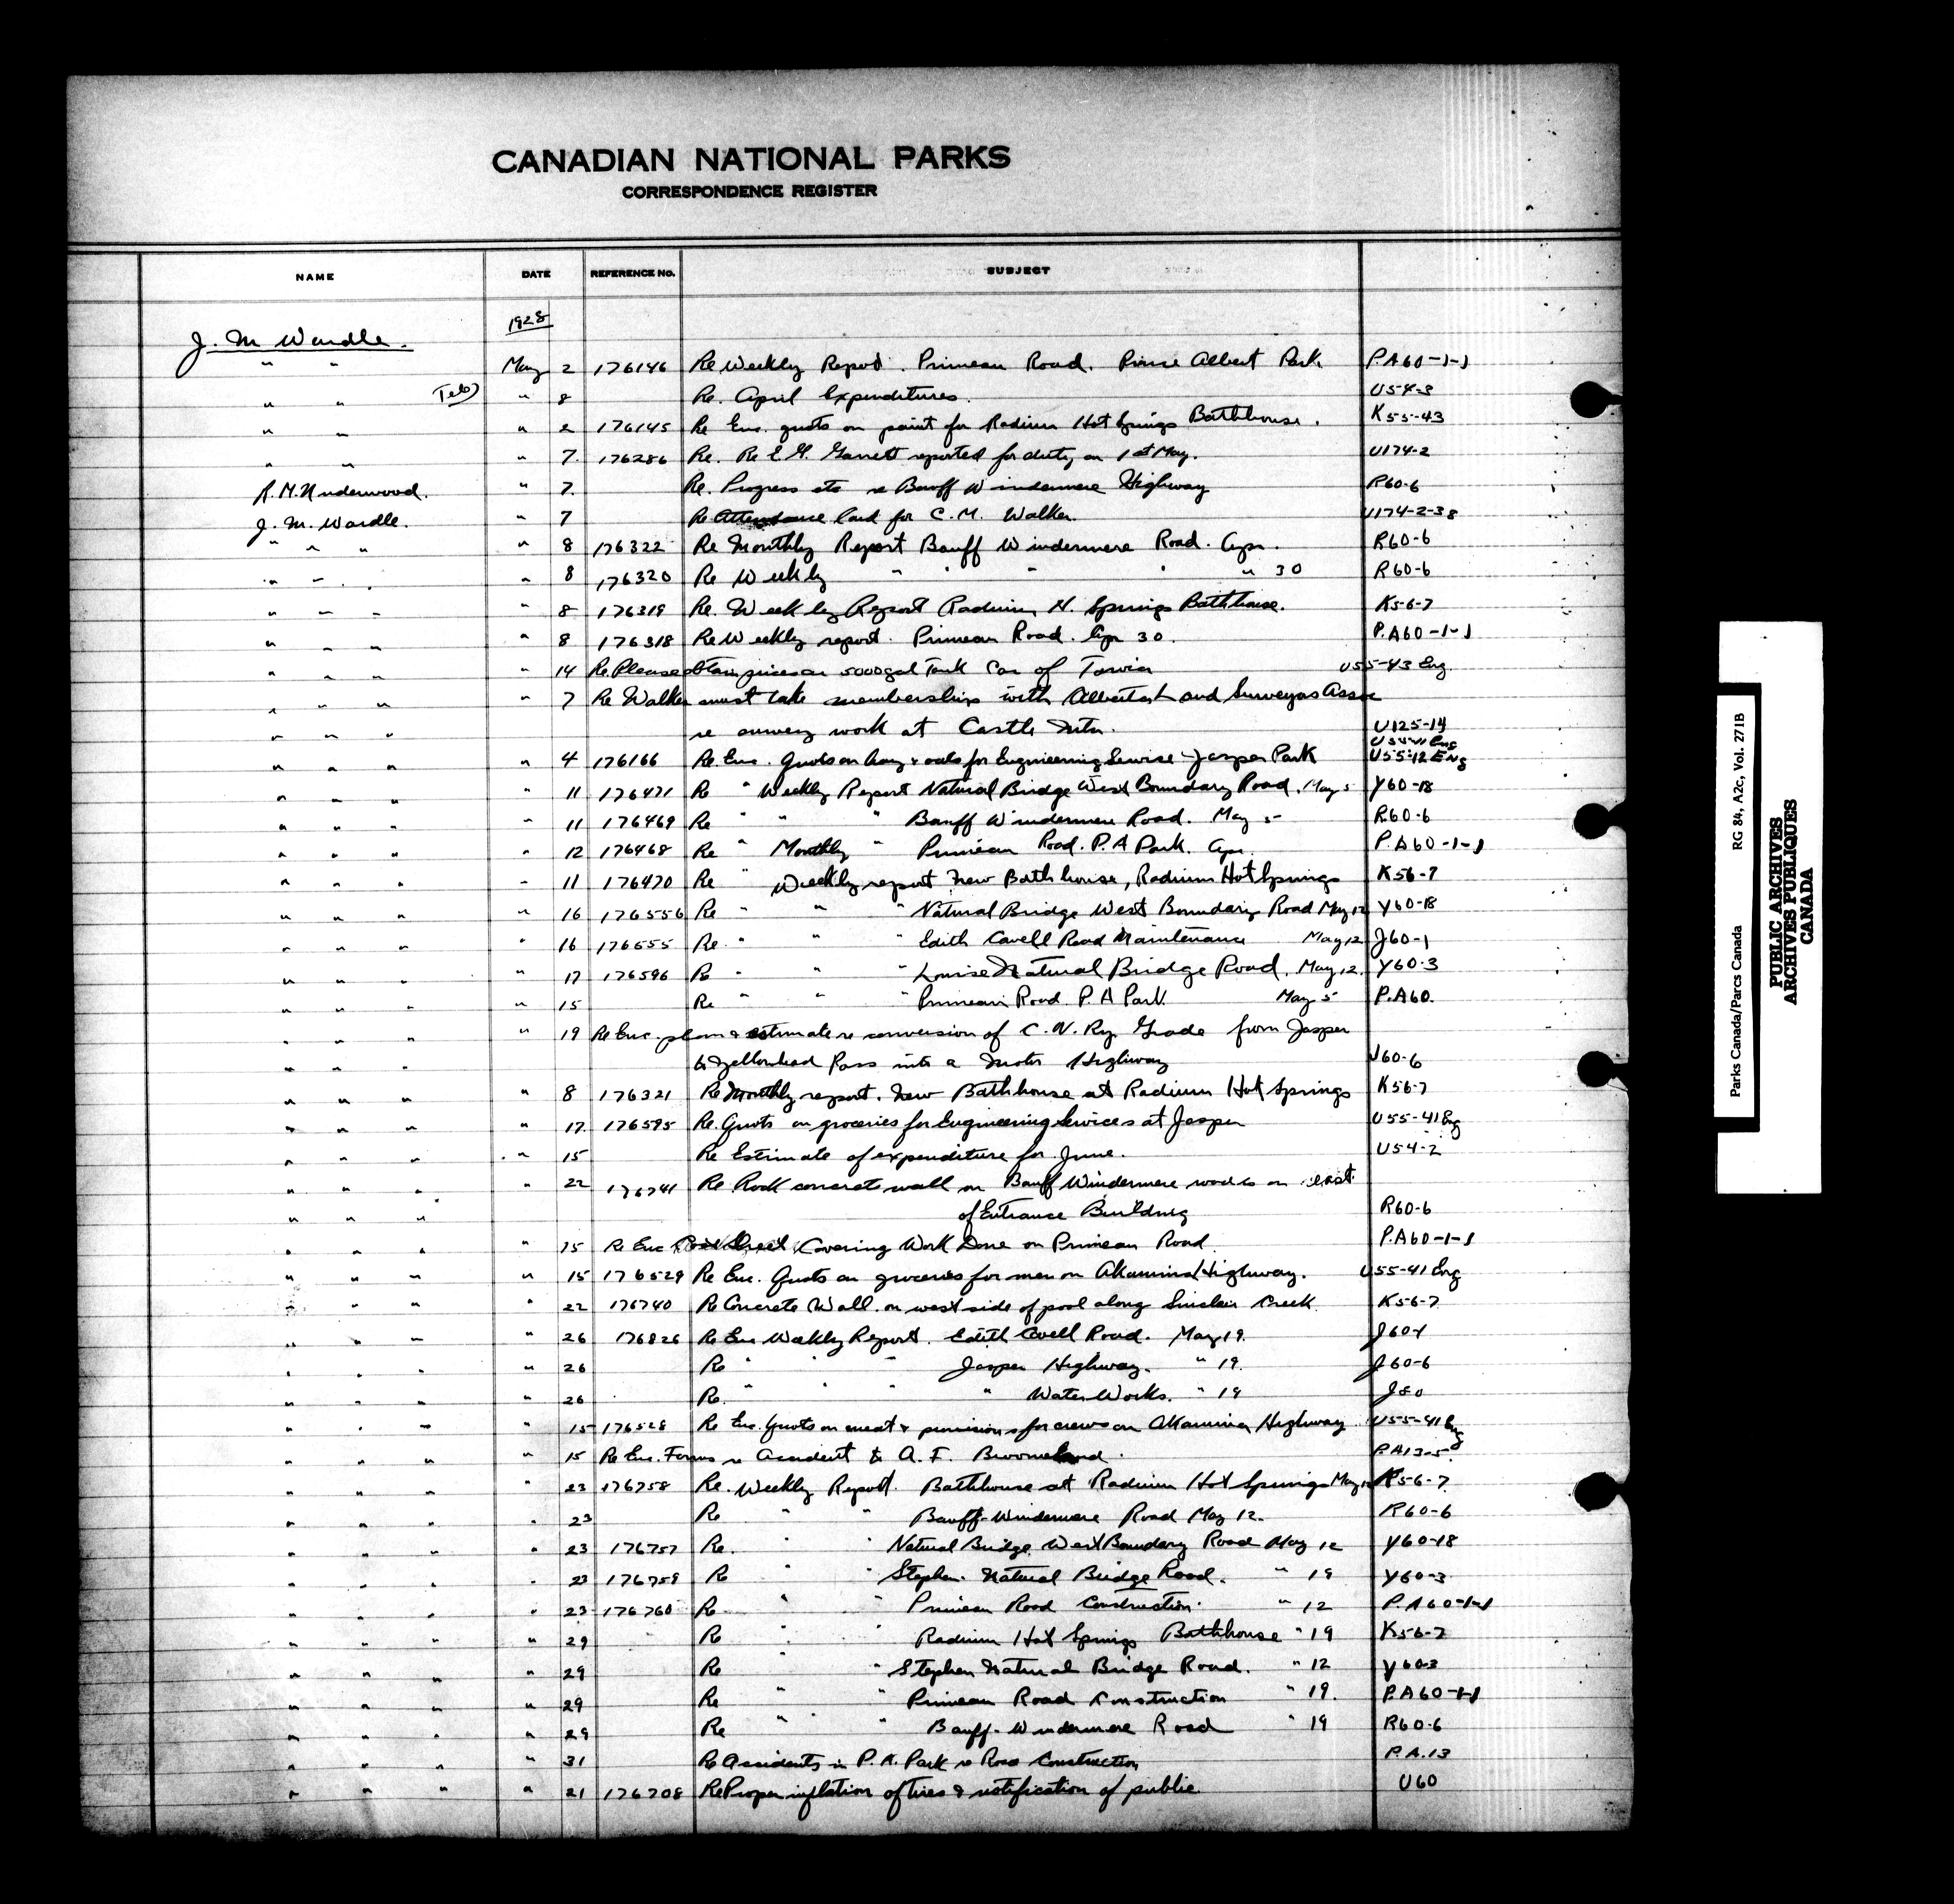 CANADIAN NATIONAL PARKS
CORRESPONDENCE REGISTER
NAME DATE REFERENCE NO. SUBJECT
1928
J. M Wardle.
" " May 2 176146 Re Weekly Report. Primeau Road. Prince Albert Park P.A60-1-1
" " " 8 Re. April Expenditures. U54-3
" " " 2 176145 Re Enc. quots on paint for Radium Hot Springs Bathhouse. K55-43
" " " 7. 176286 Re. Re E. G. Garrett reported for duty on 1st May. U174-2
R. M. Underwood. " 7. Re. Progress etc re Banff Windermere Highway R60-6
J. M. Wardle. " 7 Re Attendance Card for C. M. Walker. U174-2-38
" " " " 8 176322 Re Monthly Report Banff Windermere Road. Apr. R60-6
" " " " 8 176320 Re Weekly " " " " " 30 R60-6
" " " " 8 176319 Re. Weekly Report Radium H. Springs Bathhouse. K56-7
" " " " 8 176318 Re Weekly report. Primeau Road. Apr 30. P.A60-1-1
" " " " 14 Re Please obtain prices on 5000 gal Tank Car of Tarvia U55-43 Eng
" " " " 7 Re Walker must take membership with Alberta Land Surveyors Assoc
" " " re survey work at Castle Mtn. U125-14
" " " " 4 176166 Re. Enc. Quots on hay & oats for Engineering Service Jasper Park U55-12 Eng
" " " " 11 176471 Re " Weekly Report Natural Bridge West Boundary Road. May 5 Y60-18
" " " " 11 176469 Re " " " Banff Windermere Road. May 5 R60-6
" " " " 12 176468 Re " Monthly " Primeau Road. P.A Park. Apr. P.A60-1-1
" " " " 11 176470 Re " Weekly report New Bathhouse, Radium Hot Springs K56-7
" " " " 16 176556 Re " " " Natural Bridge West Boundary Road May 12 Y60-18
" " " " 16 176555 Re. " " " Edith Cavell Road Maintenance May 12 J60-1
" " " " 17 176596 Re " " " Louise Natural Bridge Road. May 12. Y60-3
" " " " 15 Re " " " Primeau Road. P. A Park May 5 P.A60.
" " " " 19 Re Enc. plan & estimate re conversion of C. N. Ry. Grade from Jasper
" " " to Yellowhead Pass into a Motor Highway J60-6
" " " " 8 176321 Re Monthly report. New Bathhouse at Radium Hot Springs K56-7
" " " " 17. 176595 Re. Quots on groceries for Engineering Services at Jasper U55-41 Eng
" " " " 15 Re Estimate of expenditure for June. U54-2
" " " " 22 176741 Re Rock concrete wall on Banff Windermere road on east
" " " of Entrance Building R60-6
" " " " 15 Re Enc Cost Sheet Covering Work Done on Primeau Road. P.A60-1-1
" " " " 15 176529 Re Enc. Quots on groceries for men on Akamina Highway. U55-41 Eng
" " " " 22 176740 Re Concrete Wall on west side of pool along Sinclair Creek. K56-7
" " " " 26 176826 Re Enc Weekly Report. Edith Cavell Road. May 19. J60-1
" " " " 26 Re " " " Jasper Highway. " 19. J60-6
" " " " 26 Re. " " " " Water Works. " 19 J80
" " " " 15 176528 Re Enc. Quots on meat & provisions for crews on Akamina Highway U55-41 Eng
" " " " 15 Re Enc. Forms re accident to A. F. P.A13-5
" " " " 23 176758 Re. Weekly Report. Bathhouse at Radium Hot Springs May 12 K56-7
" " " " 23 Re " " Banff-Windermere Road May 12. R60-6
" " " " 23 176757 Re. " " Natural Bridge West Boundary Road May 12 Y60-18
" " " " 23 176759 Re " " Stephen. Natural Bridge Road. " 19 Y60-3
" " " " 23 176760 Re " " Primeau Road Construction. " 12 P.A60-1-1
" " " " 29 Re " " Radium Hot Springs Bathhouse " 19 K56-7
" " " " 29 Re " " Stephen Natural Bridge Road. " 12 Y60-3
" " " " 29 Re " " Primeau Road Construction " 19. P.A60-1-1
" " " " 29 Re " " Banff-Windermere Road " 19 R60-6
" " " " 31 Re Accidents in P. A. Park re Road Construction P.A.13
" " " " 21 176708 Re Proper inflation of tires & notification of public U60
RG 84, A2c, Vol. 271B
Parks Canada/Parcs Canada
PUBLIC ARCHIVES
ARCHIVES PUBLIQUES
CANADA